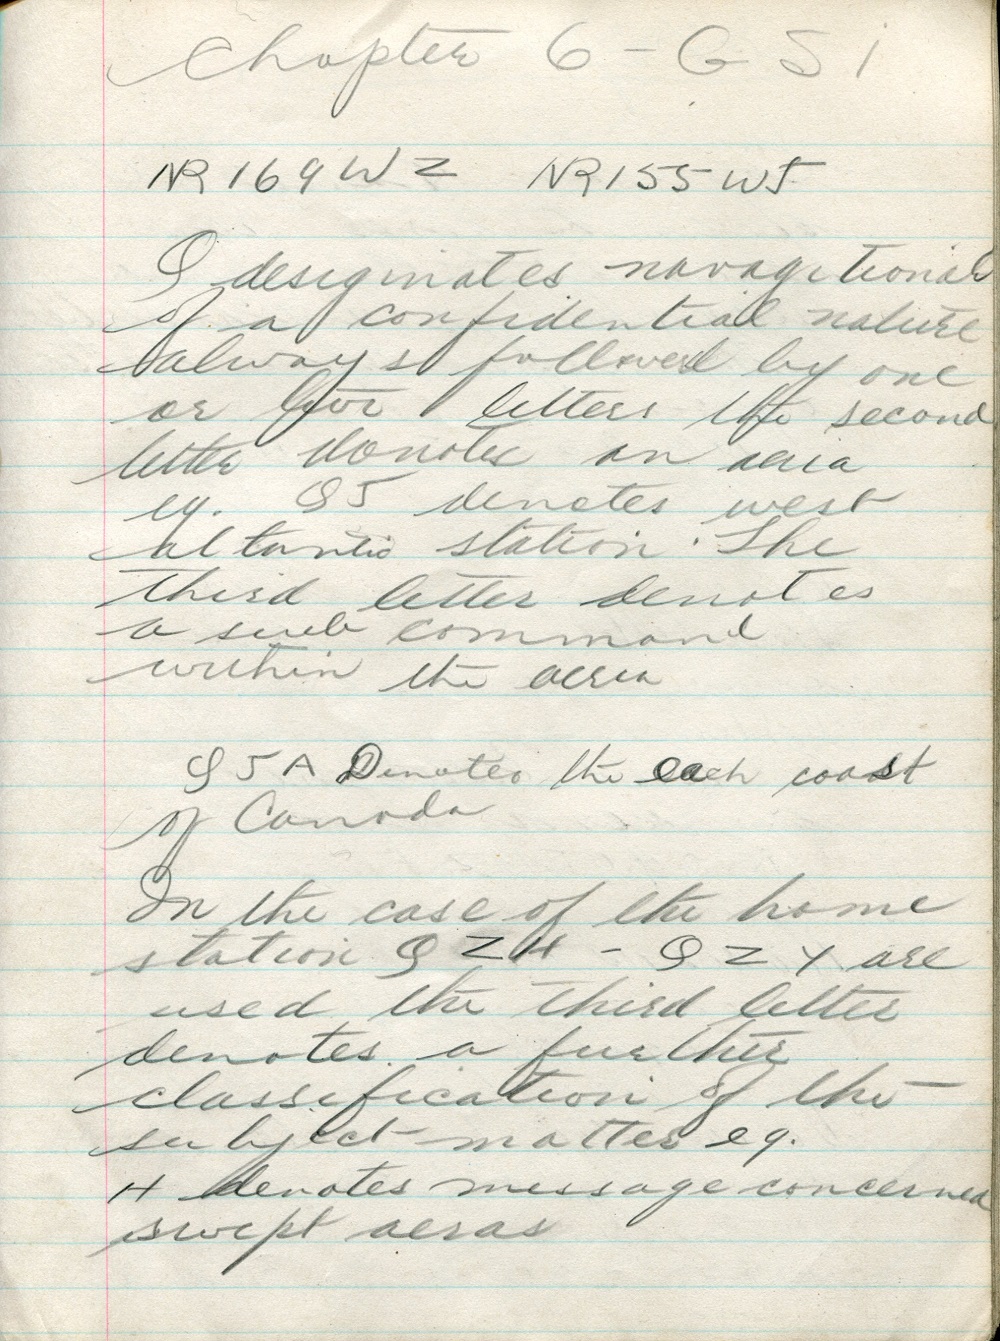 Chapter 6 - G S I
NR 169 WZ NR 155 WJ
Q desiginates navagitional
of a confidential nature
always followed by one
or two letters the second
letter donotes an aeria
eg. QJ denotes west
altantic station. The
third letter denotes
a sub command
within the aeria
QJA Denotes the each coast
of Canada
In the case of the home
station QZH - QZY are
used the third letter
denotes a further
classification of the
subject matter eg.
H denotes message concerned
swept aeras